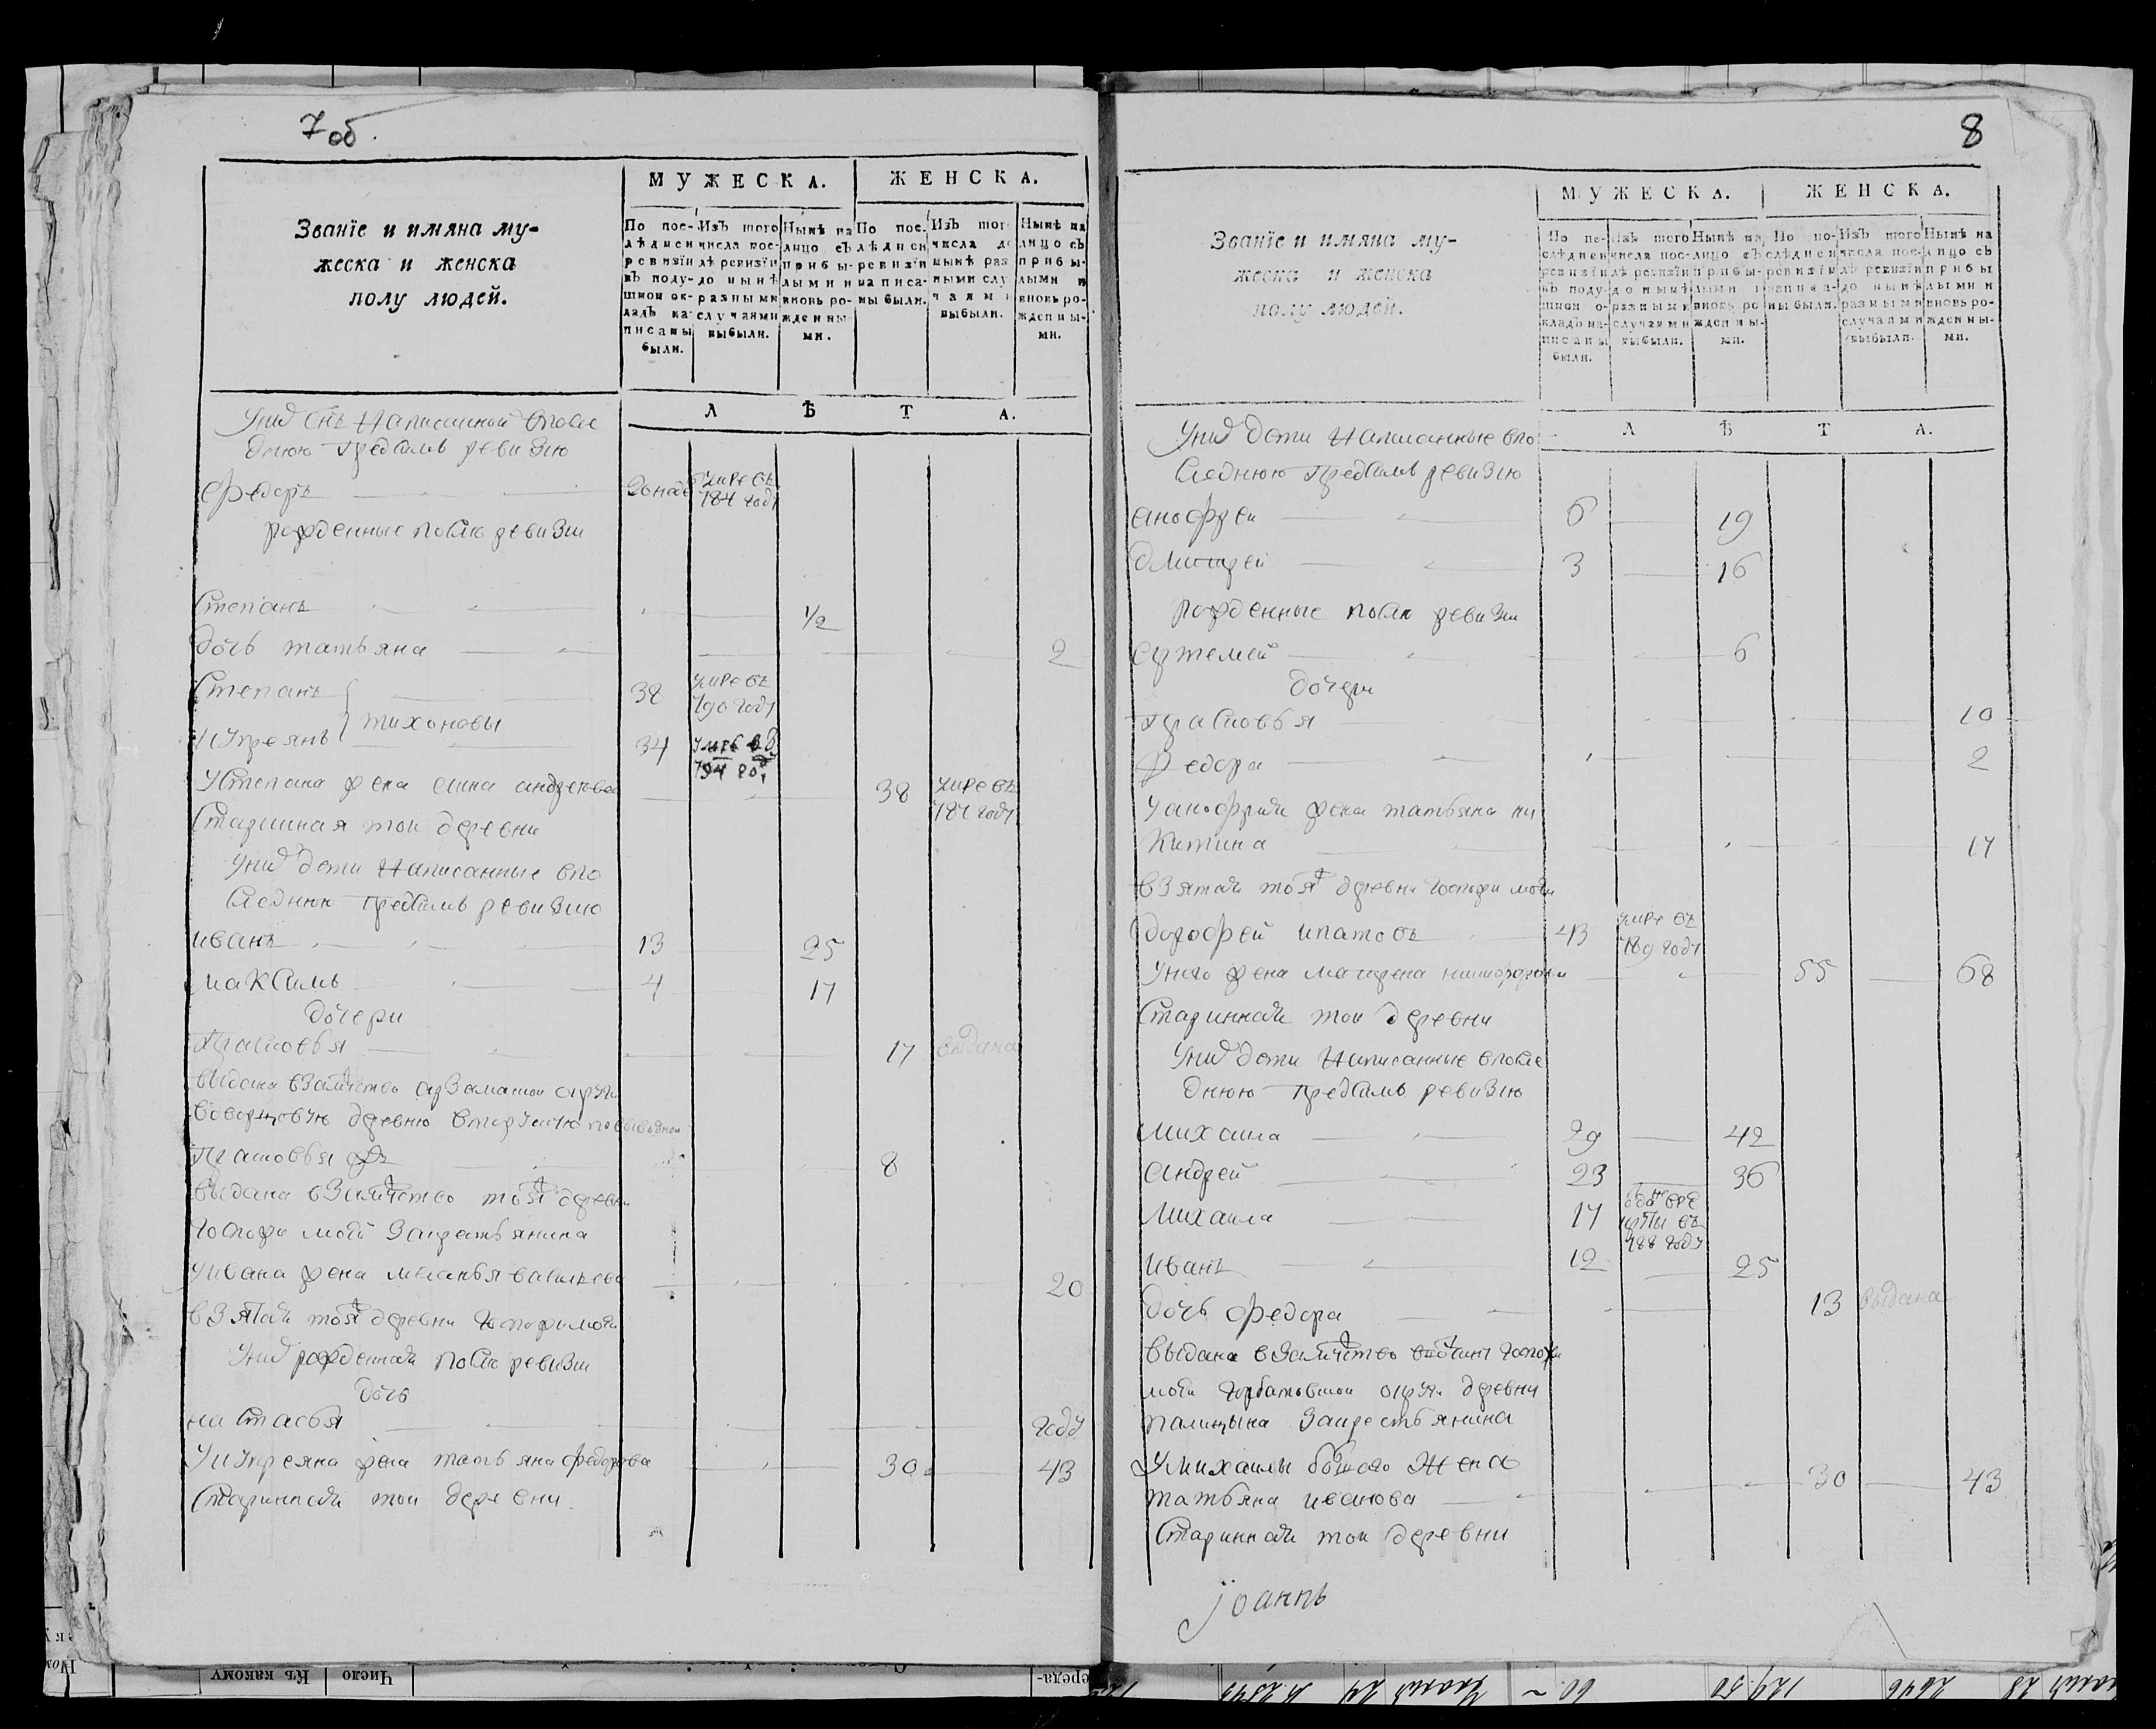 7 об.
Званїе и имяна му-
жеска и женска
полу людей.
МУЖЕСКА.
ЖЕНСКА.
По пос-
лѣдней
ревизїи
въ поду-
шной ок-
ладъ на-
писаны
были.
Изъ того
числа пос-
лѣ ревизїи
до нынѣ
разными
случаями
выбыли.
Нынѣ на
лицо съ
прибы-
лыми и
вновь ро-
жденны-
ми.
По пос.
лѣдней
ревизїи
написа-
ны были.
Изъ тог
числа до
нынѣ раз
ными слу
чаями
выбыли.
Нынѣ на
лицо съ
прибы-
лыми и
вновь ро-
жденны-
ми.
ЛѢТА.
Уних снъ написанной впосле
днюю предсимъ ревизию
Федоръ умре въ 784 году
рожденные после ревизии
Степанъ 1/2
дочь татьяна 2
Степанъ 38 умре въ 790 году
тихоновы
Купреянъ 34 794 год
Устепана жена анна андреева 38 умре въ 787 году
Старинная тои деревни
Уних дети написанные впо
следнюю предсимъ ревизию
иванъ 13 25
максимъ 4 17
дочери
прасковья 17 выдана
выдана взамужство арзамаской округи
деревню
прасковья 8
выдана взамужство тояж деревни
Госпожи моей закрестьянина
Уивана жена маланья васильева 20
взятая тояж деревни Госпожи моей
Уних рожденная после ревизии
дочь
настасья году
Укупреяна жена татьяна федорова 30 43
Старинная тои деревни
8
Званїе и имяна му-
жеска и женска
полу людей.
МУЖЕСКА.
ЖЕНСКА.
По по-
слѣдней
ревизїи
въ поду-
шной о-
кладъ на-
писаны
были.
Изъ того
числа пос-
лѣ ревизїи
до нынѣ
разными
случаями
выбыли.
Нынѣ на
лицо съ
прибы-
лыми и
вновь ро-
жденны-
ми.
По по-
слѣдней
ревизїи
написа-
ны были.
Изъ того
числа пос-
лѣ ревизїи
до нынѣ
разными
случаями
выбыли.
Нынѣ на
лицо съ
прибы
лыми и
вновь ро-
жденны-
ми.
ЛѢТА.
Уних дети написанные впо
следнюю предсимъ ревизию
анофреи 6 19
дмитреи 3 16
рожденные после ревизии
артемей 6
дочери
прасковья 10
федора 2
Уанофрия жена татьяна ни
китина 17
взятая тояж деревни Госпожи моей
дорофей ипатовъ 43 умре въ 789 году
Унего жена матрена никифорова 55 68
Старинная тои деревни
Уних дети написанные впосле
днюю предсимъ ревизию
михаила 29 42
андрей 23 36
михаила 17 отдан в рекруты въ 788 году
иванъ 12 25
дочь федора 13 выдана
выдана взамужство вотчины госпожи
моей горбатовской округи деревни
палицына закрестьянина
Умихаилы большого жена
татьяна иванова 30 43
Старинная тои деревни
Iоаннъ